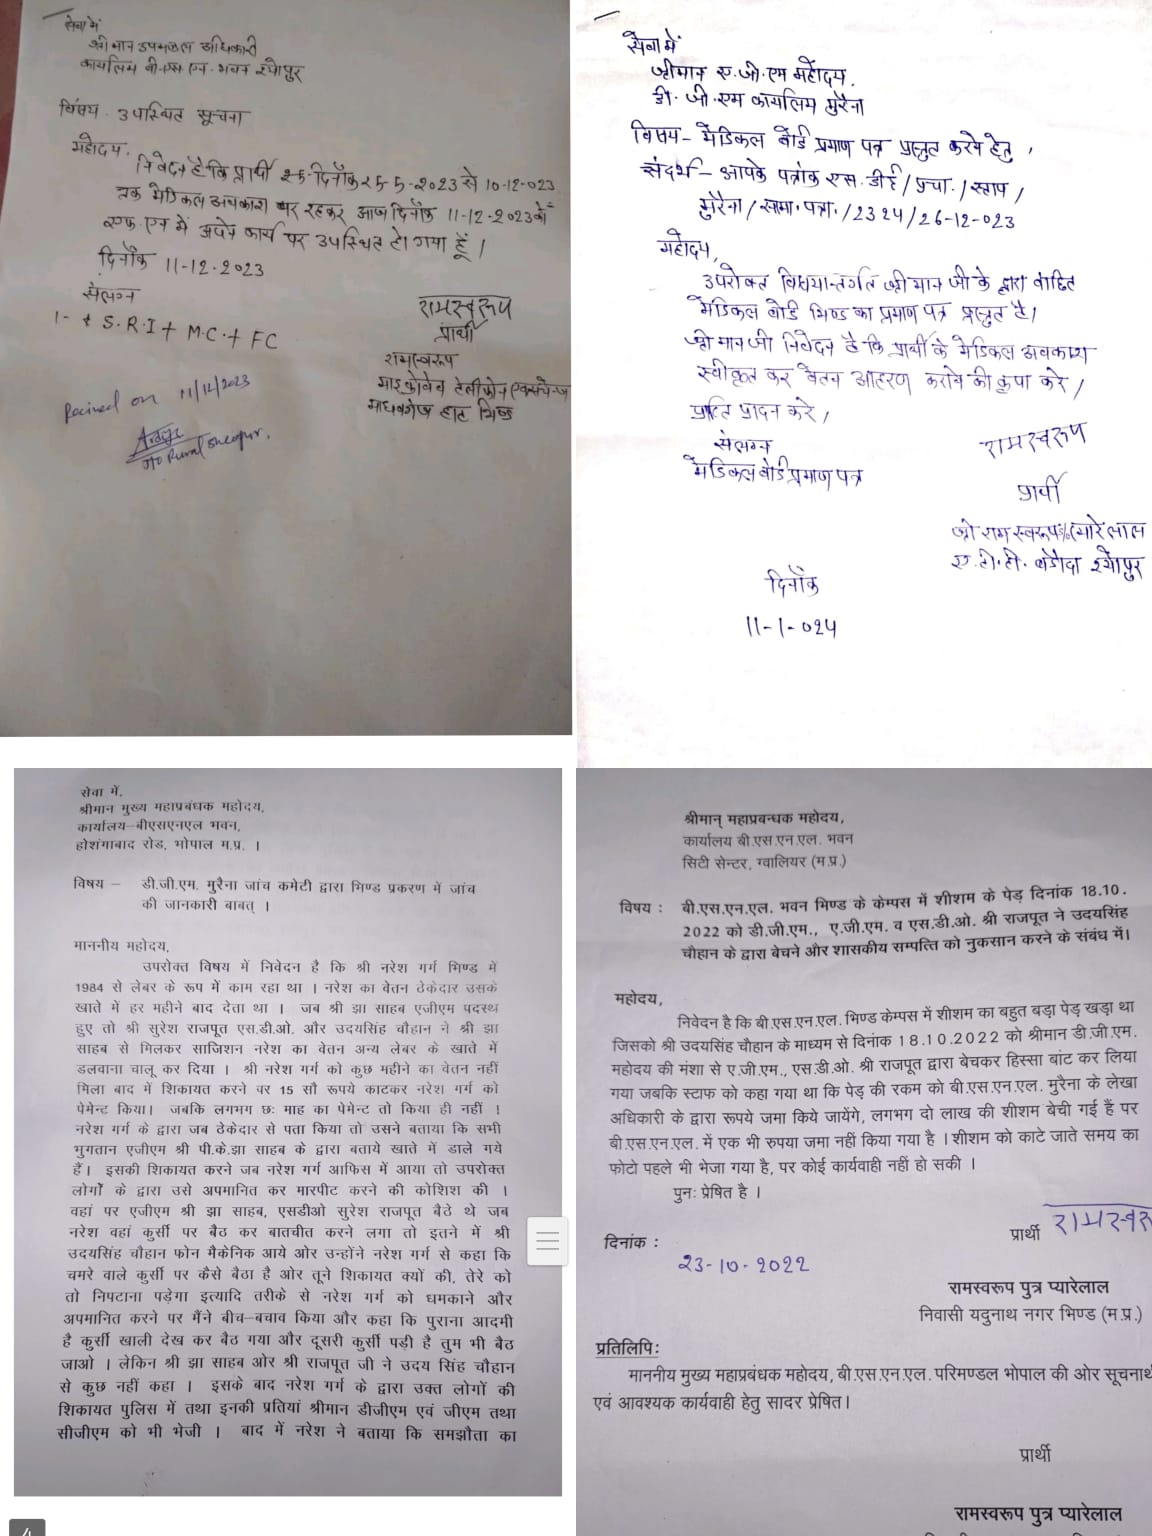 सेवा में
श्री मान उपमण्डल अधिकारी
कार्यालय बी.एस.एन. भवन श्योपुर
विषय. उपस्थित सूचना
महोदय,
निवेदन है कि प्रार्थी दिनाँक 25-5-2023 से 10-12-023
तक मेडिकल अवकाश पर रहकर आज दिनाँक 11-12-2023 को
एफ एन में अपने कार्य पर उपस्थित हो गया हूँ।
दिनाँक 11-12-2023
संलग्न
1- + S.R.I + M.C. + FC
रामस्वरूप
प्रार्थी
रामस्वरूप
माइक्रोवेव टेलीफोन एक्सचेन्ज
माधवगंज हाट भिण्ड
Recived on 11/12/2023
Rural Sheopur.
सेवा में
श्रीमान ए.जी.एम महोदय.
डी. जी. एम कार्यालय मुरैना
विषय- मेडिकल बोर्ड प्रमाण पत्र प्रस्तुत करने हेतु,
संदर्भ- आपके पत्रांक एस.डीई/प्रचा./स्टाप/
मुरैना/सामा.पत्रा./2324/26-12-023
महोदय,
उपरोक्त विषयान्तर्गत श्री मान जी के द्वारा वांछित
मेडिकल बोर्ड भिण्ड का प्रमाण पत्र प्रस्तुत है।
श्री मान जी निवेदन है कि प्रार्थी के मेडिकल अवकाश
स्वीकृत कर वेतन आहरण कराने की कृपा करे,
प्रति प्रादन करे,
संलग्न
मेडिकल बोर्ड प्रमाण पत्र
रामस्वरूप
प्रार्थी
श्री राम स्वरूप % प्यारेलाल
ए.टी.टी. बडौदा श्योपुर
दिनाँक
11-1-024
सेवा में,
श्रीमान मुख्य महाप्रबंधक महोदय,
कार्यालय-बीएसएनएल भवन,
होशंगाबाद रोड, भोपाल म.प्र. ।
विषय – डी.जी.एम. मुरैना जांच कमेटी द्वारा भिण्ड प्रकरण में जांच
की जानकारी बाबत् ।
माननीय महोदय,
उपरोक्त विषय में निवेदन है कि श्री नरेश गर्ग भिण्ड में
1984 से लेबर के रूप में काम रहा था । नरेश का वेतन ठेकेदार उसके
खाते में हर महीने बाद देता था । जब श्री झा साहब एजीएम पदस्थ
हुए तो श्री सुरेश राजपूत एस.डी.ओ. और उदयसिंह चौहान ने श्री झा
साहब से मिलकर साजिशन नरेश का वेतन अन्य लेबर के खाते में
डलवाना चालू कर दिया । श्री नरेश गर्ग को कुछ महीने का वेतन नहीं
मिला बाद में शिकायत करने पर 15 सौ रूपये काटकर नरेश गर्ग को
पेमेन्ट किया। जबकि लगभग छः माह का पेमेन्ट तो किया ही नहीं ।
नरेश गर्ग के द्वारा जब ठेकेदार से पता किया तो उसने बताया कि सभी
भुगतान एजीएम श्री पी.के.झा साहब के द्वारा बताये खाते में डाले गये
हैं। इसकी शिकायत करने जब नरेश गर्ग आफिस में आया तो उपरोक्त
लोगों के द्वारा उसे अपमानित कर मारपीट करने की कोशिश की ।
वहां पर एजीएम श्री झा साहब, एसडीओ सुरेश राजपूत बैठे थे जब
नरेश वहां कुर्सी पर बैठ कर बातचीत करने लगा तो इतने में श्री
उदयसिंह चौहान फोन मैकेनिक आये ओर उन्होंने नरेश गर्ग से कहा कि
चमरे वाले कुर्सी पर कैसे बैठा है ओर तूने शिकायत क्यों की, तेरे को
तो निपटाना पड़ेगा इत्यादि तरीके से नरेश गर्ग को धमकाने और
अपमानित करने पर मैंने बीच-बचाव किया और कहा कि पुराना आदमी
है कुर्सी खाली देख कर बैठ गया और दूसरी कुर्सी पड़ी है तुम भी बैठ
जाओ । लेकिन श्री झा साहब ओर श्री राजपूत जी ने उदय सिंह चौहान
से कुछ नहीं कहा । इसके बाद नरेश गर्ग के द्वारा उक्त लोगों की
शिकायत पुलिस में तथा इनकी प्रतियां श्रीमान डीजीएम एवं जीएम तथा
सीजीएम को भी भेजी । बाद में नरेश ने बताया कि समझौता का
4
श्रीमान् महाप्रबन्धक महोदय,
कार्यालय बी.एस.एन.एल. भवन
सिटी सेन्टर, ग्वालियर (म.प्र.)
विषय : बी.एस.एन.एल. भवन भिण्ड के केम्पस में शीशम के पेड़ दिनांक 18.10.
2022 को डी.जी.एम., ए.जी.एम. व एस.डी.ओ. श्री राजपूत ने उदयसिंह
चौहान के द्वारा बेचने और शासकीय सम्पत्ति को नुकसान करने के संबंध में।
महोदय,
निवेदन है कि बी.एस.एन.एल. भिण्ड केम्पस में शीशम का बहुत बड़ा पेड़ खड़ा था
जिसको श्री उदयसिंह चौहान के माध्यम से दिनांक 18.10.2022 को श्रीमान डी.जी.एम.
महोदय की मंशा से ए.जी.एम., एस.डी.ओ. श्री राजपूत द्वारा बेचकर हिस्सा बांट कर लिया
गया जबकि स्टाफ को कहा गया था कि पेड़ की रकम को बी.एस.एन.एल. मुरैना के लेखा
अधिकारी के द्वारा रूपये जमा किये जायेंगे, लगभग दो लाख की शीशम बेची गई है पर
बी.एस.एन.एल. में एक भी रुपया जमा नहीं किया गया है । शीशम को काटे जाते समय का
फोटो पहले भी भेजा गया है, पर कोई कार्यवाही नहीं हो सकी ।
पुनः प्रेषित है ।
प्रार्थी रामस्वरू
दिनांक :
23-10-2022
रामस्वरूप पुत्र प्यारेलाल
निवासी यदुनाथ नगर भिण्ड (म.प्र.)
प्रतिलिपि:
माननीय मुख्य महाप्रबंधक महोदय, बी.एस.एन.एल. परिमण्डल भोपाल की ओर सूचनार्थ
एवं आवश्यक कार्यवाही हेतु सादर प्रेषित।
प्रार्थी
रामस्वरूप पुत्र प्यारेलाल